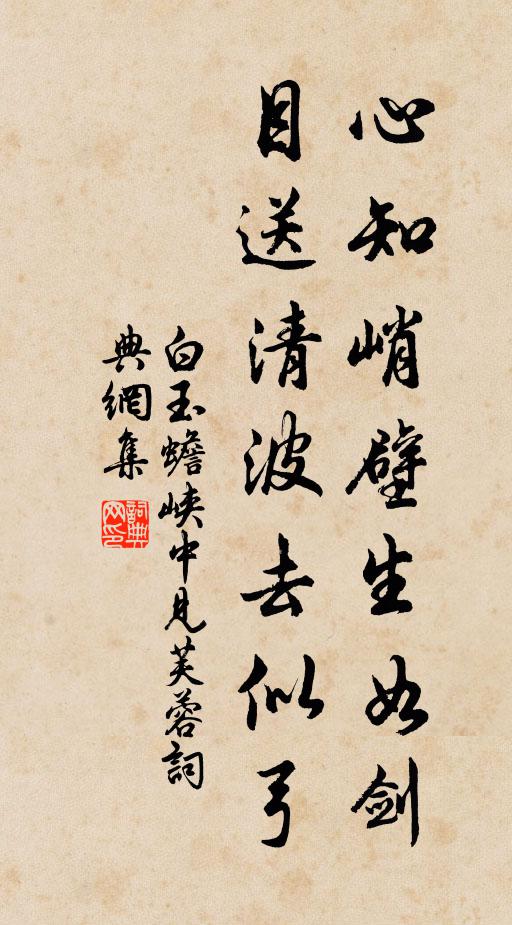 心知峭壁生如剑
目送清波去似弓
白玉蟾峡中见芙蓉詞
典網集
詞典网印